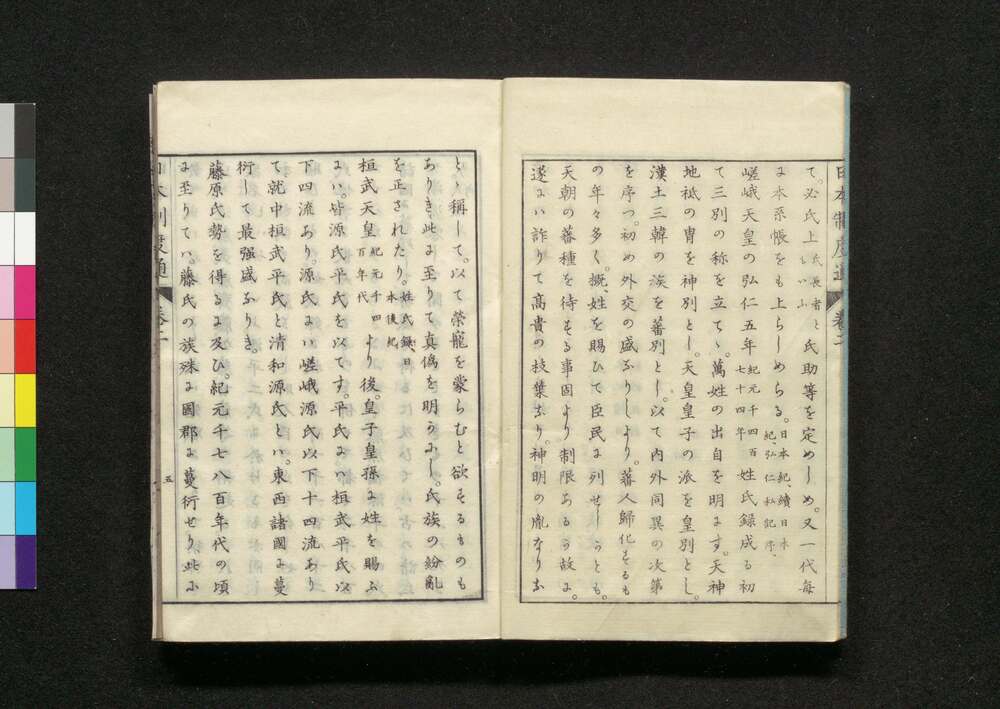 て。必氏上氏長者ともいふと氏助等を定めしめ。又一代毎
に本系帳をも上らしめらる。日本紀、續日本紀、弘仁私記序、
嵯峨天皇の弘仁五年紀元千四百七十四年姓氏録成る初
て三別の称を立て、萬姓の出自を明にす。天神
地祇の冑を神別とし。天皇皇子の派を皇別とし。
漢土三韓の族を蕃別とし。以て内外同異の次第
を序つ。初め外交の盛なりしより。蕃人歸化するも
の年々多く。概姓を賜ひて臣民に列せしうとも。
天朝の蕃種を待する事固より制限あるう故に。
遂には詐りて高貴の枝葉なり。神明の胤なりな
と稱して。以て榮寵を蒙らむと欲するものも
ありき此に至りて真偽を明うにし。氏族の紛亂
を正されたり。姓氏録、日本後紀
桓武天皇紀元千四百年代より後。皇子皇孫に姓を賜ふ
には。皆源氏平氏を以てす。平氏には桓武平氏以
下四流あり。源氏には嵯峨源氏以下十四流あり
て就中桓武平氏と清和源氏とは。東西諸國に蔓
衍して最強盛なりき。
藤原氏勢を得るに及ひ。紀元千七八百年代の頃
に至りては。藤氏の族殊に國郡に蔓衍せり此に
日本制度通
卷一
五